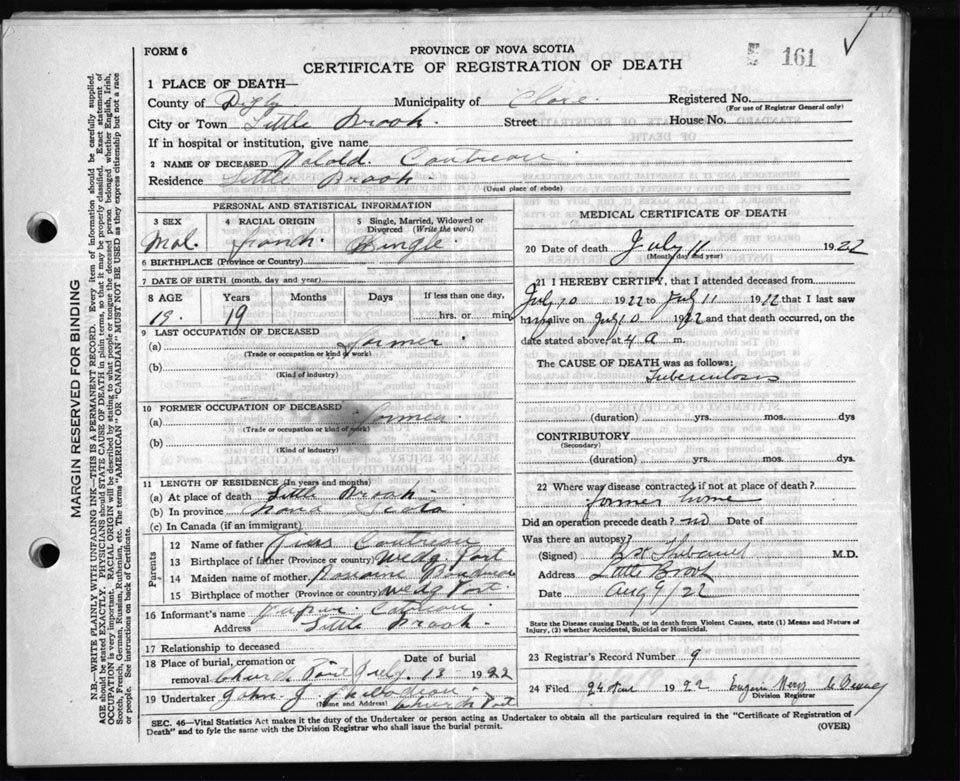 FORM 6
PROVINCE OF NOVA SCOTIA
CERTIFICATE OF REGISTRATION OF DEATH
161
1 PLACE OF DEATH—
County of Digby Municipality of Clare. Registered No.
(For use of Registrar General only)
City or Town Little Brook. Street House No.
If in hospital or institution, give name
2 NAME OF DECEASED
Residence Little Brook.
(Usual place of abode)
PERSONAL AND STATISTICAL INFORMATION
3 SEX 4 RACIAL ORIGIN 5 Single, Married, Widowed or Divorced (Write the word)
Mal. french. Single.
6 BIRTHPLACE (Province or Country)
7 DATE OF BIRTH (month, day and year)
8 AGE Years Months Days If less than one day,
19. 19 hrs. or min.
9 LAST OCCUPATION OF DECEASED
(a) farmer.
(Trade or occupation or kind of work)
(b)
(Kind of industry)
10 FORMER OCCUPATION OF DECEASED
(a) farmer.
(Trade or occupation or kind of work)
(b)
(Kind of industry)
11 LENGTH OF RESIDENCE (In years and months)
(a) At place of death Little Brook.
(b) In province Nova Scotia
(c) In Canada (if an immigrant)
Parents
12 Name of father
13 Birthplace of father (Province or country) Wedg Port
14 Maiden name of mother
15 Birthplace of mother (Province or country) Wedg Port.
16 Informant's name
Address Little Brook.
17 Relationship to deceased
18 Place of burial, cremation or removal Church Point Date of burial July. 13 1922
19 Undertaker John J
(Name and Address) Church Port
MEDICAL CERTIFICATE OF DEATH
20 Date of death July 11 1922
(Month, day and year)
21 I HEREBY CERTIFY, that I attended deceased from
July 10 1922 to July 11 1922 that I last saw
him alive on July 10 1922 and that death occurred, on the
date stated above, at 4 a m.
The CAUSE OF DEATH was as follows:
Tuberculosis
(duration) yrs. mos. dys
CONTRIBUTORY
(Secondary)
(duration) yrs. mos. dys
22 Where was disease contracted if not at place of death?
former home
Did an operation precede death? no Date of
Was there an autopsy?
(Signed) M.D.
Address Little Brook
Date Aug 9/22
State the Disease causing Death, or in death from Violent Causes, state (1) Means and Nature of
Injury, (2) whether Accidental, Suicidal or Homicidal.
23 Registrar's Record Number 9
24 Filed 24 1922
Division Registrar
SEC. 46—Vital Statistics Act makes it the duty of the Undertaker or person acting as Undertaker to obtain all the particulars required in the "Certificate of Registration of
Death" and to fyle the same with the Division Registrar who shall issue the burial permit. (OVER)
MARGIN RESERVED FOR BINDING
N.B.—WRITE PLAINLY WITH UNFADING INK—THIS IS A PERMANENT RECORD. Every item of information should be carefully supplied.
AGE should be stated EXACTLY. PHYSICIANS should STATE CAUSE OF DEATH in plain terms, so that it may be properly classified. Exact statement of
OCCUPATION is very important. RACIAL ORIGIN will be described by stating to what people or tongue the deceased person belonged whether English, Irish,
Scotch, French, German, Russian, Ruthenian, etc. The terms "AMERICAN" OR "CANADIAN" MUST NOT BE USED as they express citizenship but not a race
or people. See instructions on back of Certificate.